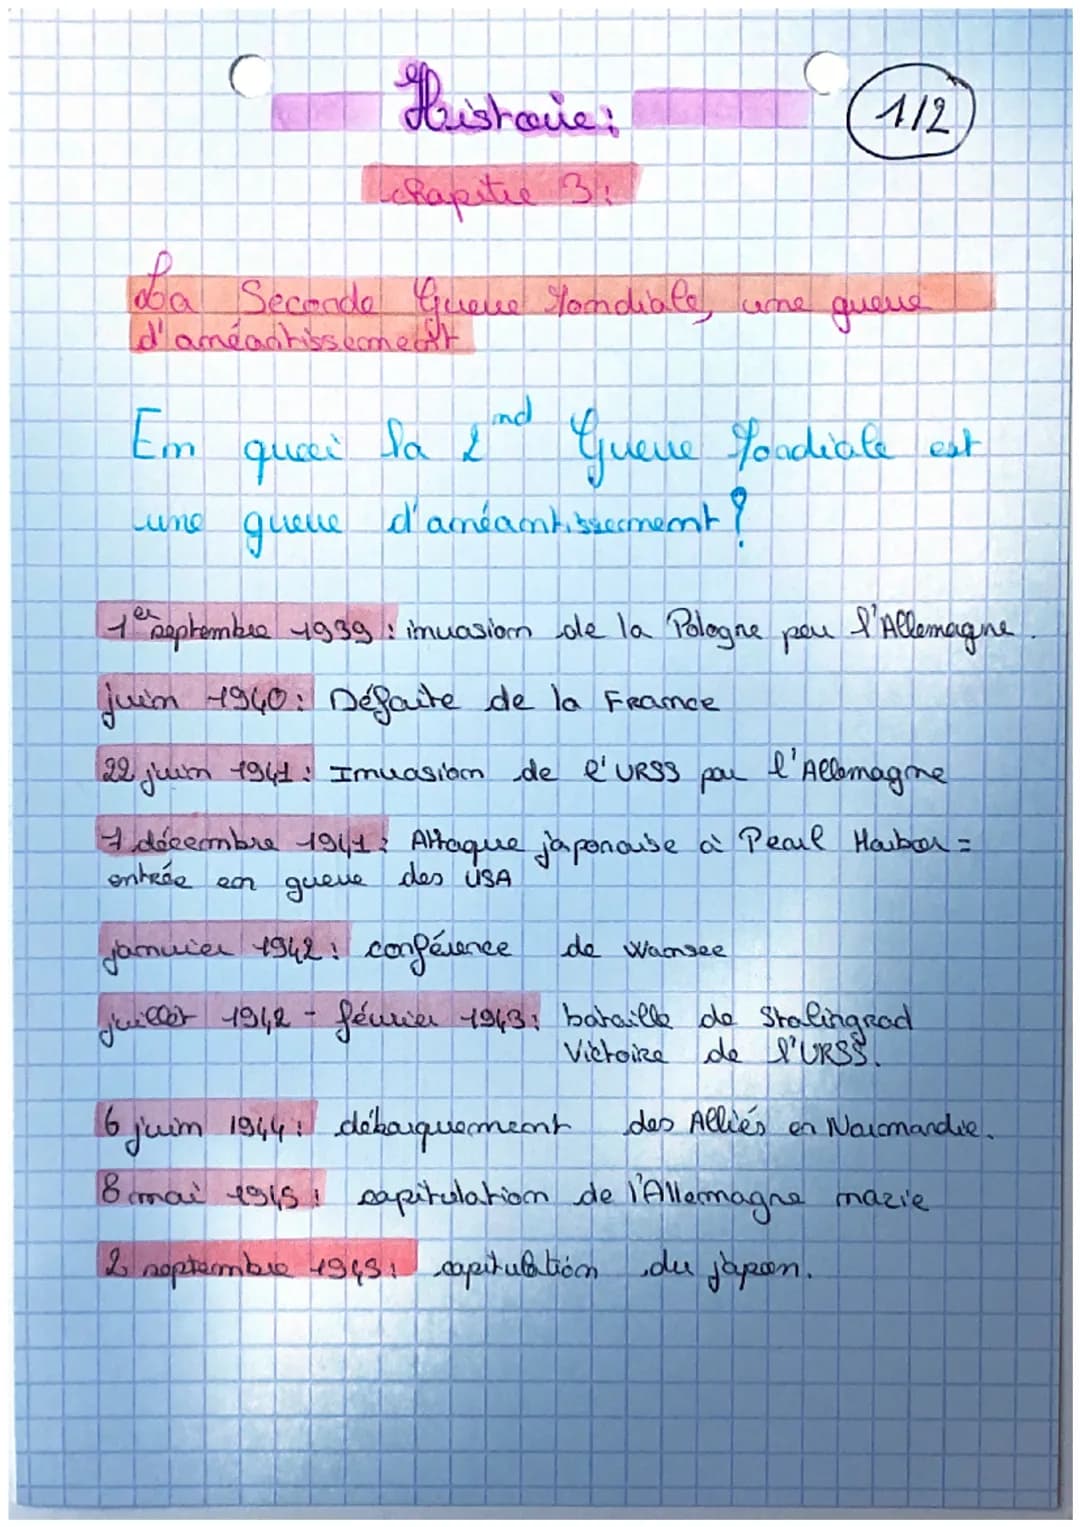 Histoire :
1/2
chapitre 3 :
La Seconde Guerre Mondiale, une guerre
d'anéantissement
En quoi la 2nd Guerre Mondiale est
une guerre d'anéantissement ?
1er septembre 1939 : invasion de la Pologne par l'Allemagne.
juin 1940 : Défaite de la France
22 juin 1941 : Invasion de l'URSS par l'Allemagne
7 décembre 1941 : Attaque japonaise à Pearl Harbor =
entrée en guerre des USA
janvier 1942 : conférence de Wansee
juillet 1942 - février 1943 : bataille de Stalingrad
Victoire de l'URSS.
6 juin 1944 : débarquement des Alliés en Normandie.
8 mai 1945 : capitulation de l'Allemagne nazie
2 septembre 1945 : capitulation du japon.